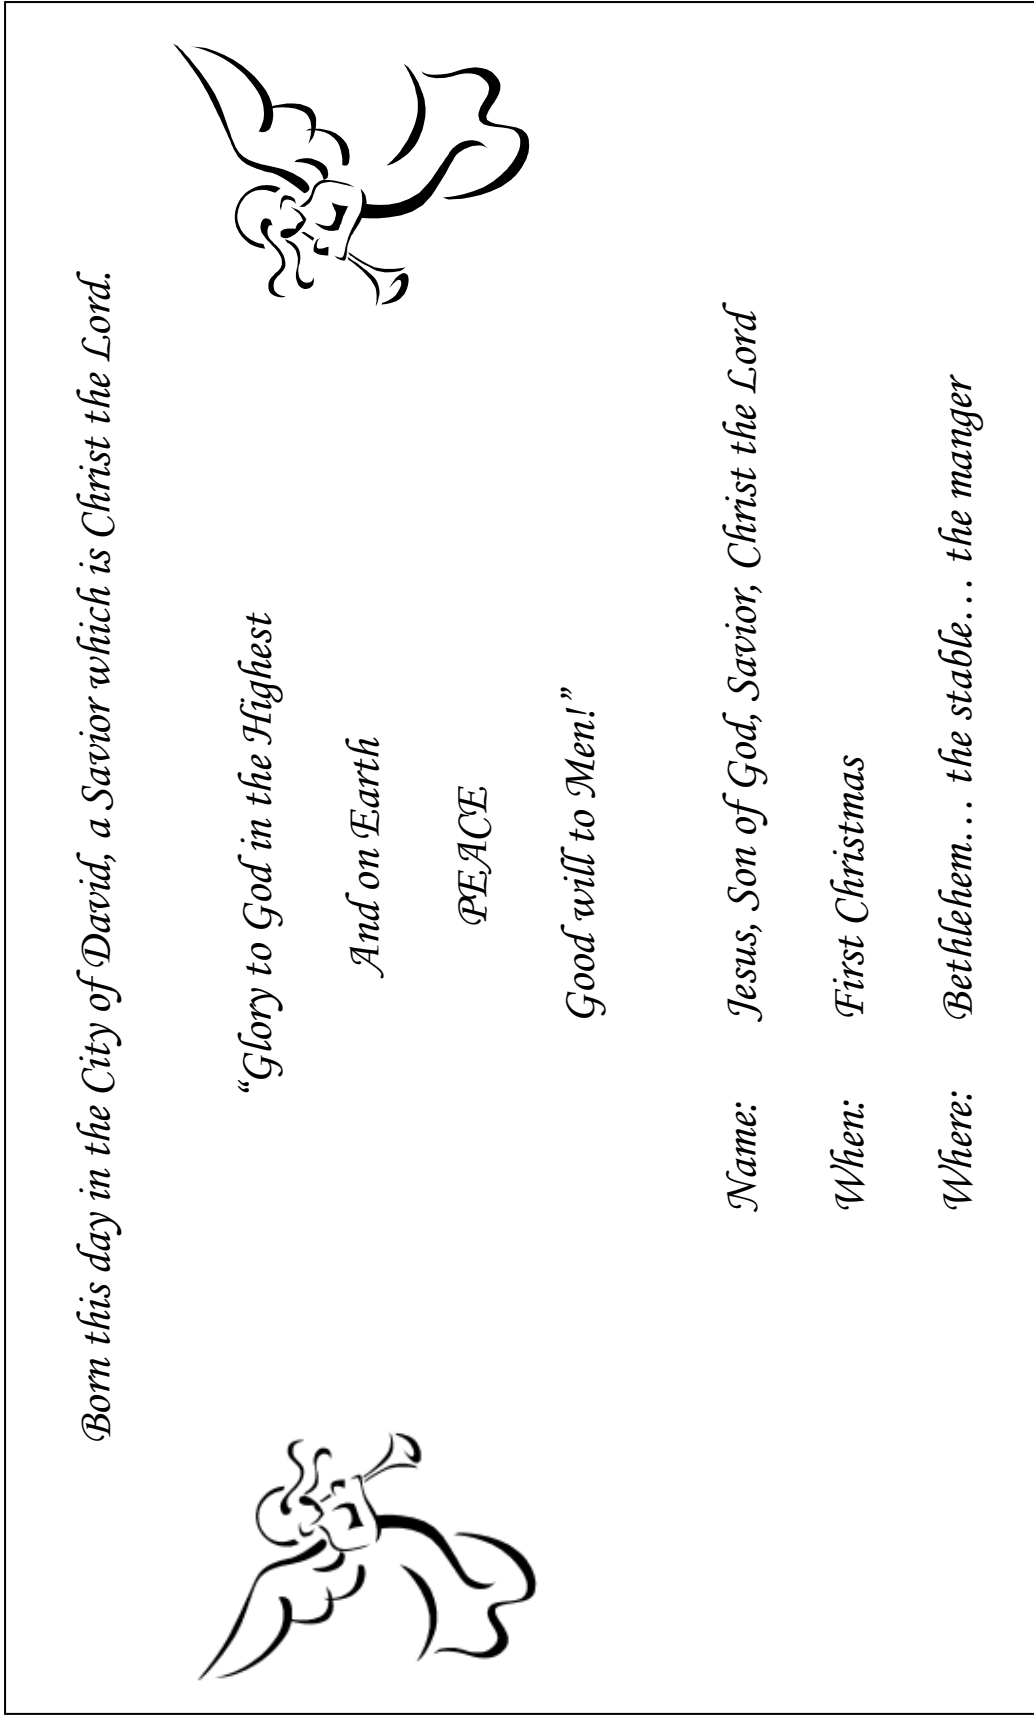 Born this day in the City of David, a Savior which is Christ the Lord.
“Glory to God in the Highest
And on Earth
PEACE
Good will to Men!”
Name: Jesus, Son of God, Savior, Christ the Lord
When: First Christmas
Where: Bethlehem… the stable… the manger